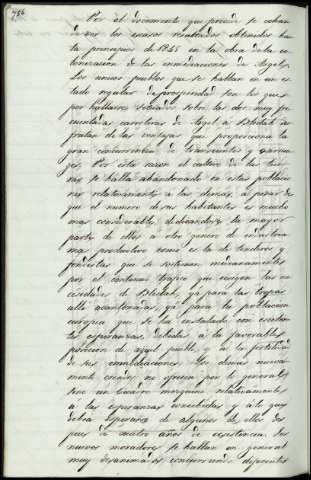 Por el documento que precede se echan
de ver los escasos resultados obtenidos has
ta principios de 1845 en la obra de la co
lonizacion de las inmediaciones de Argel.
Los unicos pueblos que se hallan en un es
tado regular de prosperidad son los que
por hallarse situados sobre las dos muy fre
cuentadas carreteras de Argel á Blidah dis
frutan de las ventajas que proporciona la
gran concurrencia de transeuntes y carrua
jes. Por esta razon el cultivo de las tier
ras se halla abandonado en estas poblacio
nes relativamente á las demas, á pesar de
que el numero de sus habitantes es mucho
mas considerable, dedicandose la mayor
parte de ellos á otro genero de industria
mas productivo como es la de tenderos y
fondistas que se sostienen medianamente
por el continuo trafico que exigen las ne
cesidades de Blidah, ya para las tropas
alli acantonadas, ya para la poblacion
europea que se ha instalado con excelen
tes esperanzas, debidas á la favorable
posicion de aquel pueblo, y á la fertilidad
de sus inmediaciones. Los demas nueva
mente creados no ofrecen por lo general
sino un cuadro mezquino relativamente
á las esperanzas concebidas y á lo que
debia esperarse de algunos de ellos des
pues de cuatro años de existencia. Sus
nuevos moradores se hallan en general
muy desanimados, conservando diferentes